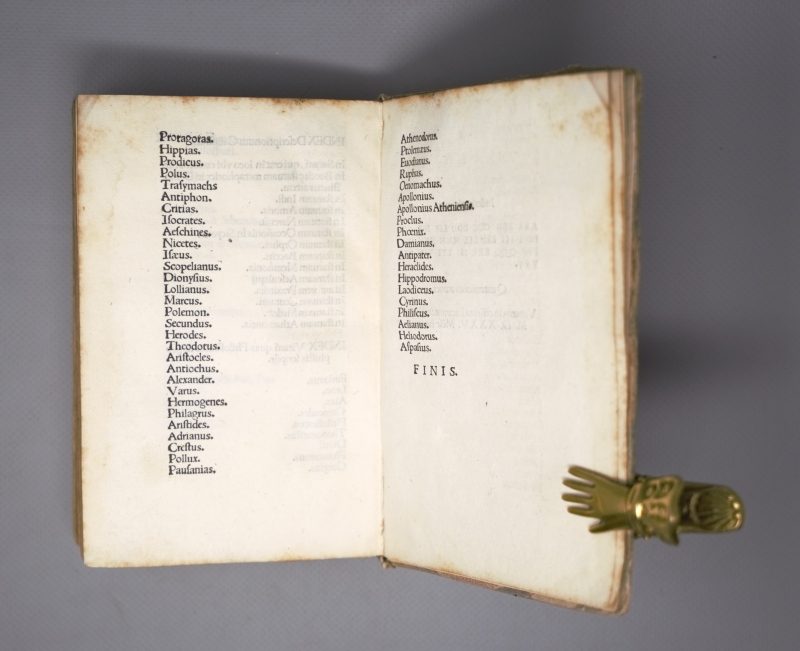 Protagoras.
Hippias.
Prodicus.
Polus.
Traſymachs
Antiphon.
Critias.
Iſocrates.
Aeſchines.
Nicetes.
Iſæus.
Scopelianus.
Dionyſius.
Lollianus.
Marcus.
Polemon.
Secundus.
Herodes.
Theodotus.
Ariſtocles.
Antiochus.
Alexander.
Varus.
Hermogenes.
Philagrus.
Ariſtides.
Adrianus.
Creſtus.
Pollux.
Pauſanias.
Athenodorus.
Ptolemæus.
Euodianus.
Ruphus.
Onomachus.
Apollonius.
Apollonius Athenienſis.
Proclus.
Phœnix.
Damianus.
Antipater.
Heraclides.
Hippodromus.
Laodiceus.
Cyrinus.
Philiſcus.
Aelianus.
Heliodorus.
Aſpaſius.
FINIS.